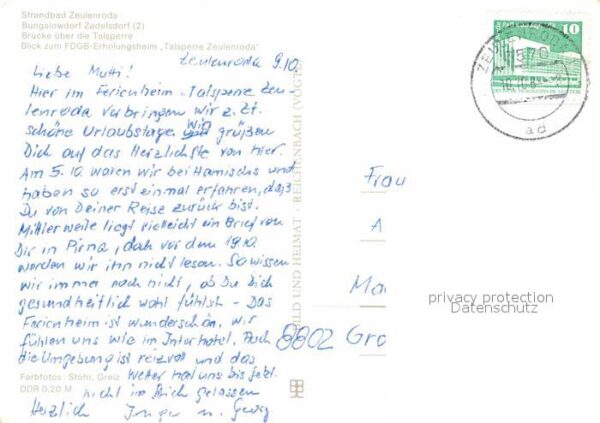 Strandbad Zeulenroda
Bungalowdorf Zadelsdorf (2)
Brücke über die Talsperre
Blick zum FDGB-Erholungsheim „Talsperre Zeulenroda"
Zeulenroda 9.10.
Liebe Mutti!
Hier im Ferienheim Talsperre Zeu-
lenroda verbringen wir z. Zt.
schöne Urlaubstage. Wir grüßen
Dich auf das Herzlichste von hier.
Am 5.10. waren wir bei Hamischs und
haben so erst einmal erfahren, daß
Du von Deiner Reise zurück bist.
Mittlerweile liegt vielleicht ein Brief von
Dir in Pirna, doch vor dem 19.10.
werden wir ihn nicht lesen. So wissen
wir immer noch nicht, ob Du Dich
gesundheitlich wohl fühlst - Das
Ferienheim ist wunderschön, wir
fühlen uns wie im Interhotel. Auch
die Umgebung ist reizvoll und das
Wetter hat uns bis jetzt
nicht im Stich gelassen
Herzlich Inge u. Georg
Farbfotos: Stöhr, Greiz
DDR 0,20 M
BILD UND HEIMAT · REICHENBACH (VOGTL
10
ZEULENRODA
6570
ad
Frau
A
Ma
8802 Gro
privacy protection
Datenschutz